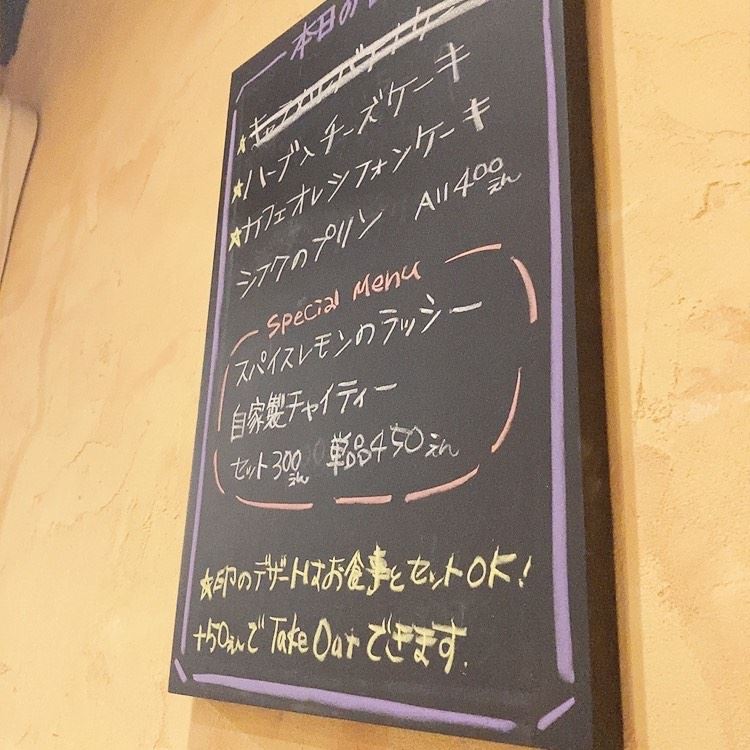 本日の
★
★ハーブのチーズケーキ
★カフェオレシフォンケーキ
シフクのプリン All 400えん
Special Menu
スパイスレモンのラッシー
自家製チャイティー
セット300えん 単品450えん
★印のデザートはお食事とセットOK!
+50えんで Take Oarできます.